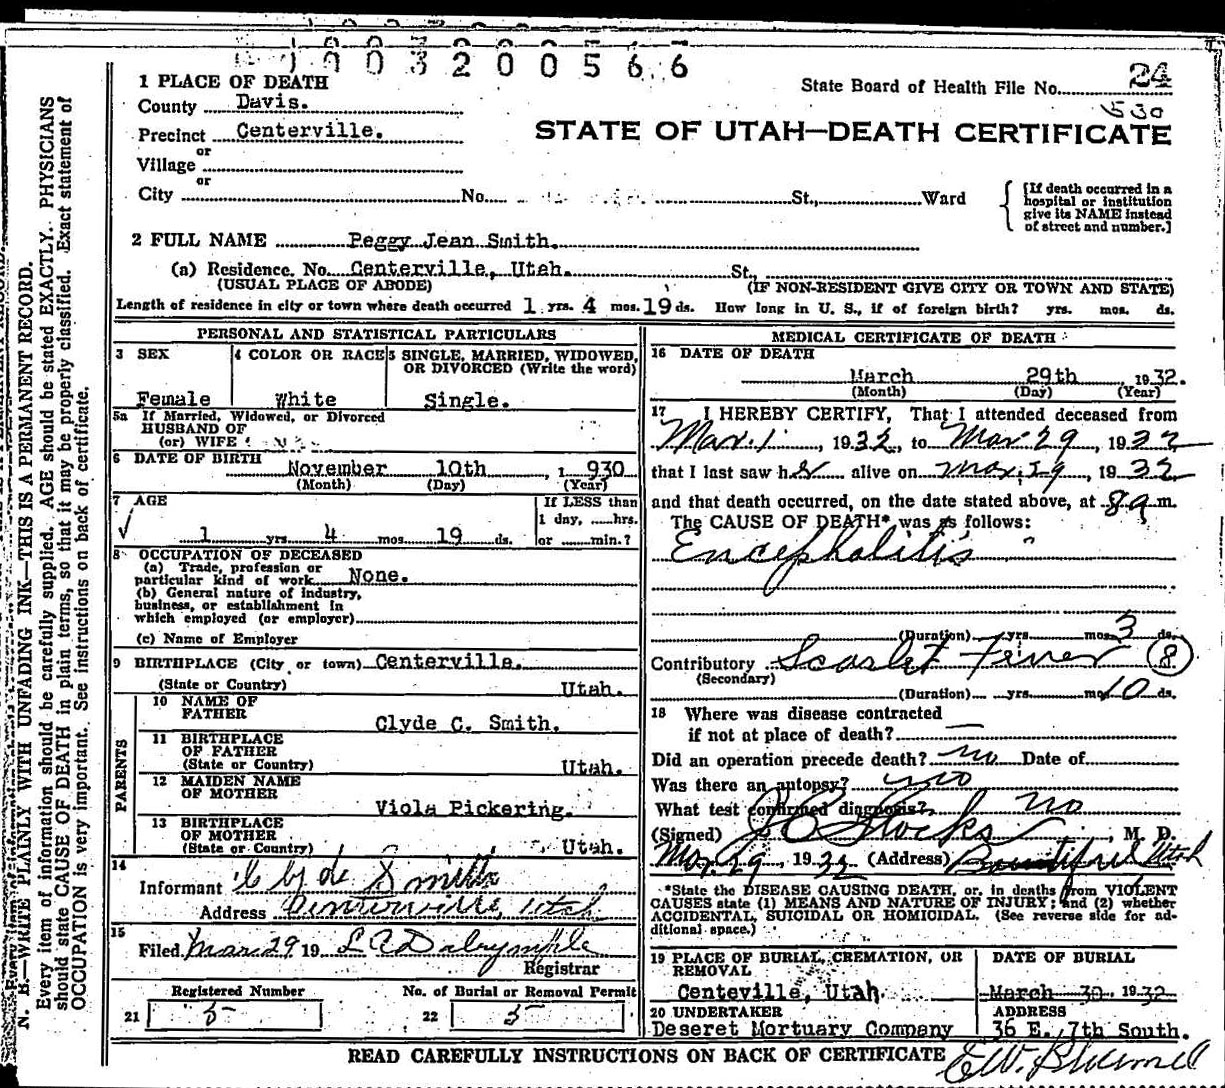 1003200566
1 PLACE OF DEATH
State Board of Health File No. 24
County Davis.
530
Precinct Centerville.
STATE OF UTAH—DEATH CERTIFICATE
or
Village
or
City No. St., Ward
[If death occurred in a hospital or institution give its NAME instead of street and number.]
2 FULL NAME Peggy Jean Smith.
(a) Residence. No. Centerville, Utah. St.,
(USUAL PLACE OF ABODE) (IF NON-RESIDENT GIVE CITY OR TOWN AND STATE)
Length of residence in city or town where death occurred 1 yrs. 4 mos. 19 ds. How long in U. S., if of foreign birth? yrs. mos. ds.
PERSONAL AND STATISTICAL PARTICULARS
3 SEX
Female
4 COLOR OR RACE
White
5 SINGLE, MARRIED, WIDOWED,
OR DIVORCED (Write the word)
Single.
5a If Married, Widowed, or Divorced
HUSBAND OF
(or) WIFE
6 DATE OF BIRTH
November 10th , 1 930
(Month) (Day) (Year)
7 AGE
1 yrs. 4 mos. 19 ds.
If LESS than
1 day, ......hrs.
or ......min.?
8 OCCUPATION OF DECEASED
(a) Trade, profession or
particular kind of work None.
(b) General nature of industry,
business, or establishment in
which employed (or employer)
(c) Name of Employer
9 BIRTHPLACE (City or town) Centerville.
(State or Country) Utah.
PARENTS
10 NAME OF
FATHER
Clyde C. Smith.
11 BIRTHPLACE
OF FATHER
(State or Country) Utah.
12 MAIDEN NAME
OF MOTHER
Viola Pickering.
13 BIRTHPLACE
OF MOTHER
(State or Country) Utah.
14
Informant Clyde Smith
Address Centerville, Utah
15
Filed Mar 29 19 L A Dalrymple
Registrar
Registered Number
21 5
No. of Burial or Removal Permit
22 5
MEDICAL CERTIFICATE OF DEATH
16 DATE OF DEATH
March 29th 1932.
(Month) (Day) (Year)
17 I HEREBY CERTIFY, That I attended deceased from
Mar. 1 , 1932, to Mar 29 , 1932
that I last saw her alive on Mar. 29 , 1932
and that death occurred, on the date stated above, at 8 a m.
The CAUSE OF DEATH* was as follows:
Encephalitis
(Duration) yrs. mos. 3 ds.
Contributory Scarlet Fever 8
(Secondary)
(Duration) yrs. mos. 10 ds.
18 Where was disease contracted
if not at place of death?
Did an operation precede death? no Date of
Was there an autopsy? no
What test confirmed diagnosis? no
(Signed) Stocks , M. D.
Mar. 29 1932 (Address) Bountiful Utah
*State the DISEASE CAUSING DEATH, or, in deaths from VIOLENT
CAUSES state (1) MEANS AND NATURE OF INJURY; and (2) whether
ACCIDENTAL, SUICIDAL OR HOMICIDAL. (See reverse side for ad-
ditional space.)
19 PLACE OF BURIAL, CREMATION, OR
REMOVAL
Centeville, Utah.
DATE OF BURIAL
March 30, 1932
20 UNDERTAKER
Deseret Mortuary Company
ADDRESS
36 E. 7th South.
READ CAREFULLY INSTRUCTIONS ON BACK OF CERTIFICATE
N. B.—WRITE PLAINLY WITH UNFADING INK—THIS IS A PERMANENT RECORD.
Every item of information should be carefully supplied. AGE should be stated EXACTLY. PHYSICIANS
should state CAUSE OF DEATH in plain terms, so that it may be properly classified. Exact statement of
OCCUPATION is very important. See instructions on back of certificate.